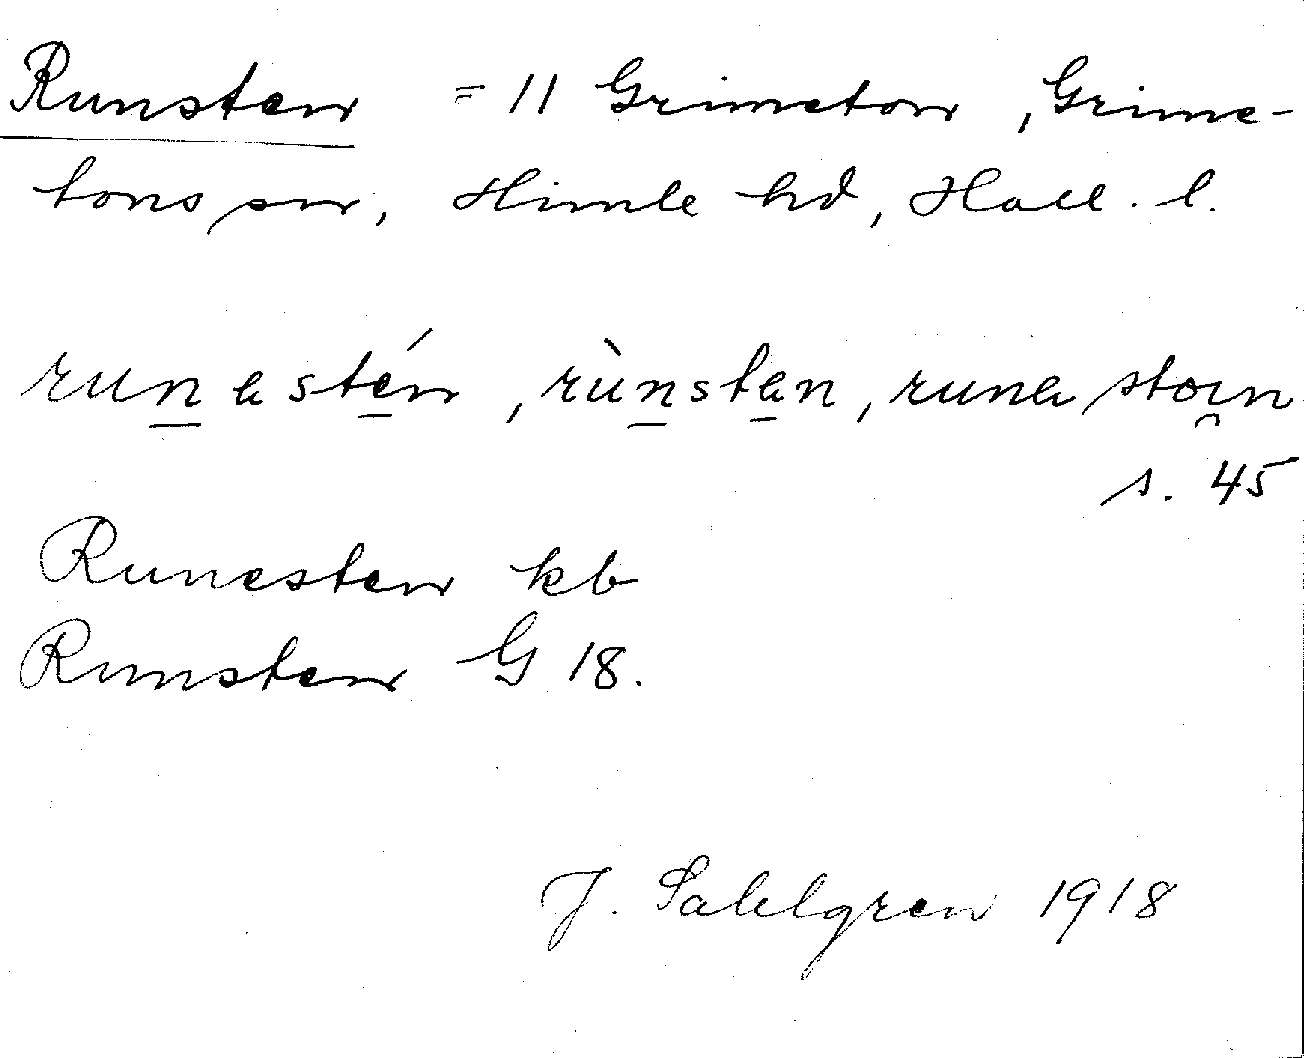 Runsten = 11 Grimeton, Grime-
tons sn, Himle hd, Hall. l.
runestén, rùnsten, rune stoın
s. 45
Runesten kb
Runsten G 18.
J. Sahlgren 1918